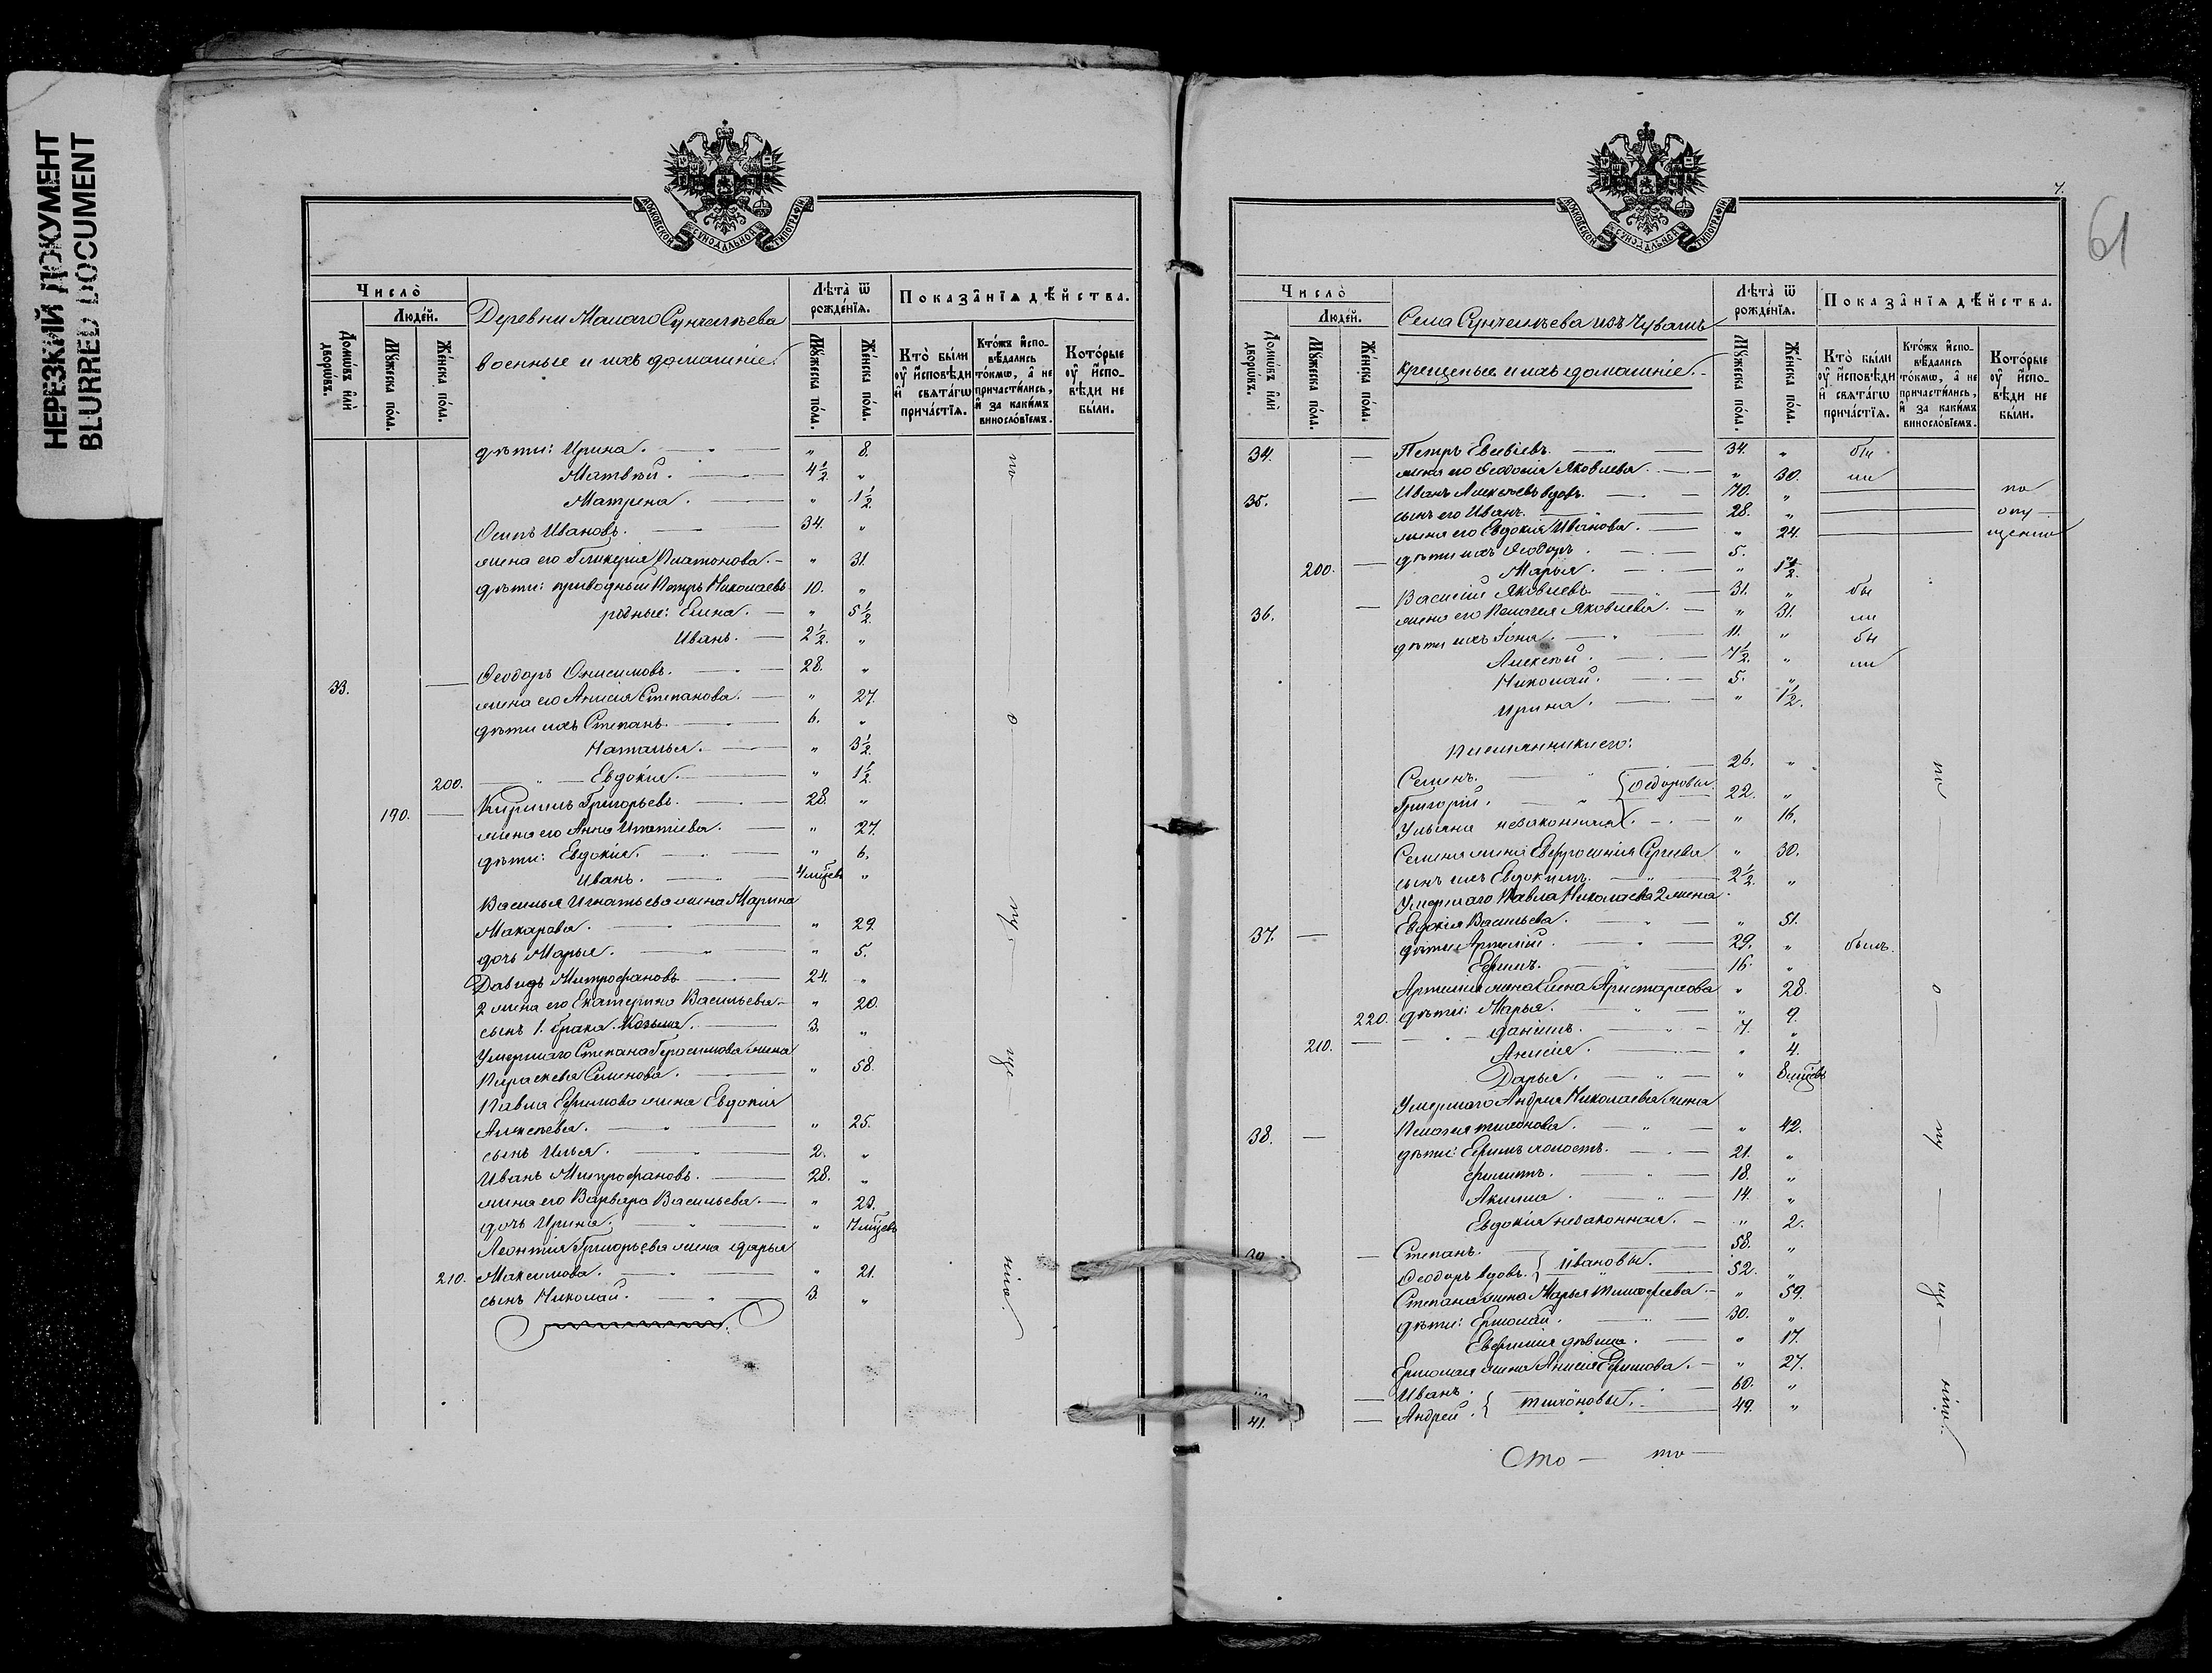 НЕРЕЗКИЙ ДОКУМЕНТ
BLURRED DOCUMENT
МОСКОВСКОЙ СѴНОДАЛЬНОЙ ТИПОГРАФІИ
Число̀
Людей.
Домѡвъ и҆лѝ дворѡвъ.
Мꙋжеска по́ла.
Же́нска по́ла.
Деревни Малаго Сунчелѣева
военные и ихъ домашніе.
Лѣта̀ ѿ рожде́нїѧ.
Мꙋжеска по́ла.
Же́нска по́ла.
Показа̑нїѧ дѣ́йства.
Кто̀ бы́ли ᲂу҆ и҆сповѣди и҆ свѧта́гѡ прича́стїѧ.
Кто́жъ и҆спо-вѣдались то́кмѡ, а҆ не причасти́лись, и҆ за каки́мъ винословїемъ.
Кото́рые ᲂу҆ и҆спо-вѣди не бы́ли.
дѣти: Ирина. — " 8.
Матвѣй. — 4 1/2. "
Матрена. — " 1 1/2.
Осипъ Ивановъ. — 34. "
жена его Гликерія Платонова. — " 31.
дѣти: приводный Петръ Николаевъ 10. "
родные: Елена. — " 5 1/2
Иванъ. — 2 1/2. "
33. — Ѳеодоръ Онисимовъ. — 28. "
жена его Анисія Степанова. — " 27.
дѣти ихъ Степанъ. — 6. "
Наталья. — " 3 1/2.
200. — " — Евдокія. — " 1 1/2.
190. — Кириллъ Григорьевъ. — 28. "
жена его Анна Игнатіева. — " 27.
дѣти: Евдокія. — " 6.
Иванъ. — 4 мѣсев "
Василья Игнатьева жена Марина
Макарова. — " 29.
дочь Марья. — " 5.
Давидъ Митрофановъ — 24. "
2 жена его Екатерина Васильева. — " 20.
сынъ 1. брака. Козьма. — 3. "
Умершаго Степана Герасимова жена
Параскева Семенова. — " 58.
Павла Ефимова жена Евдокія
Алексѣева. — " 25.
сынъ Илья. — 2. "
Иванъ Митрофановъ. — 28. "
жена его Варвара Васильева. — " 22.
дочь Ирина. — " 7 мѣсев
Леонтія Григорьева жена Дарья
210. Максимова. — " 21.
сынъ Николай. — 3. "
по — о — пу — ще — нію.
7.
61
МОСКОВСКОЙ СѴНОДАЛЬНОЙ ТИПОГРАФІИ
Число̀
Людей.
Домѡвъ и҆лѝ дворѡвъ.
Мꙋжеска по́ла.
Же́нска по́ла.
Села Сунчелѣева изъ Чувашъ
крещеные и ихъ домашніе. —
Лѣта̀ ѿ рожде́нїѧ.
Мꙋжеска по́ла.
Же́нска по́ла.
Показа̑нїѧ дѣ́йства.
Кто̀ бы́ли ᲂу҆ и҆сповѣди и҆ свѧта́гѡ прича́стїѧ.
Кто́жъ и҆спо-вѣдались то́кмѡ, а҆ не причасти́лись, и҆ за каки́мъ винословїемъ.
Кото́рые ᲂу҆ и҆спо-вѣди не бы́ли.
34. — Петръ Евсевіевъ. — 34. " бы
жена его Ѳеодосія Яковлева. — " 30. ли
35. — Иванъ Алексѣевъ вдовъ. — 70. " — по
сынъ его Иванъ. — 28. " — опу —
жена его Евдокія Иванова. — " 24. — щенію
дѣти ихъ Ѳеодоръ. — 5. "
200. — Марья. — " 1 1/2.
36. — Василій Яковлевъ. — 31. " бы
жена его Пелагея Яковлева. — " 31. ли
дѣти ихъ Іона. — 11. " бы
Алексѣй. — 7 1/2. " ли
Николай. — 5. "
Ирина. — " 1 1/2.
Племянники его:
Семенъ. — 26. "
Григорій. — } Ѳедоровы. 22. "
Ульяна незаконная. — " 16.
Семена жена Евфросинія Сергеева " 30.
сынъ ихъ Евдокимъ. — 2 1/2. "
Умершаго Павла Николаева 2 жена
37. — Евдокія Васильева. — " 51.
дѣти: Артемій. — 29. " былъ.
Ефимъ. — 16. "
Артемія жена Елена Аристархова " 28.
220. дѣти: Марья. — " 9.
210. — Даніилъ. — 7. "
Анисія. — " 4.
Дарья. — " 8 мѣсев
Умершаго Андрея Николаева жена
38. — Пелагея Тихонова. — " 42.
дѣти: Ефимъ холост. — 21. "
Филиппъ. — 18. "
Акилла. — 14. "
Евдокія незаконная. — " 2.
— Степанъ. — 58. "
Ѳеодоръ вдовъ. } Ивановы. 52. "
Степана жена Марья Тимофеева. — " 59.
дѣти: Ермолай. — 30. "
Евфимія дѣвица. — " 17.
Ермолая жена Анисія Ефимова. — " 27.
— Иванъ. 60. "
41. — Андрей. } Тихоновы. 49. "
по — о — пу — ще — нію.